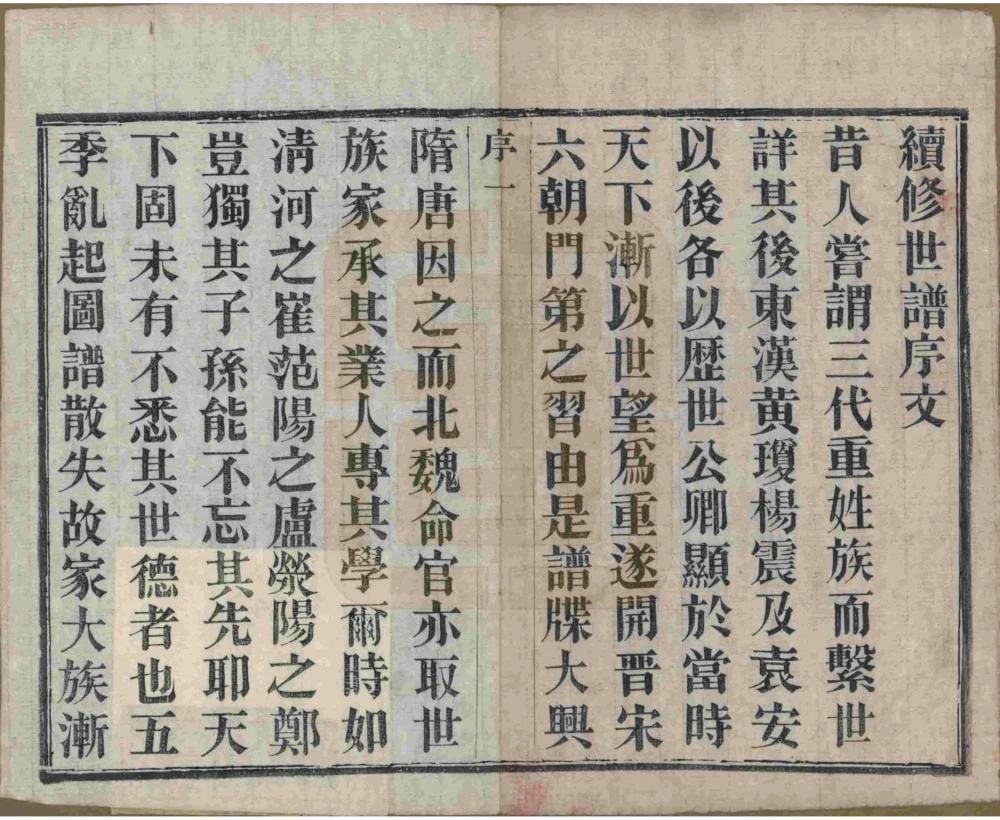 續修世譜序文
昔人嘗謂三代重姓族而繫世
詳其後東漢黄瓊楊震及袁安
以後各以歴世公卿顯於當時
天下漸以世望爲重遂開晋宋
六朝門第之習由是譜牒大興
序一
隋唐因之而北魏命官亦取世
族家承其業人專其學爾時如
清河之崔范陽之盧滎陽之鄭
豈獨其子孫能不忘其先耶天
下固未有不悉其世德者也五
季亂起圖譜散失故家大族漸